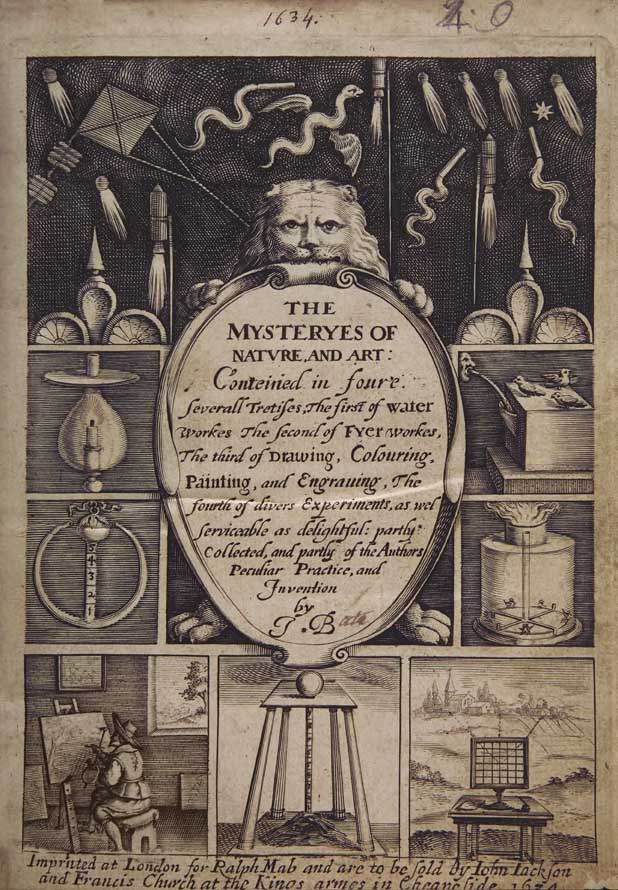 1634.
4.0
THE
MYSTERYES OF
NATVRE, AND ART:
Conteined in foure
severall Tretises, The first of water
workes The second of Fyer workes,
The third of Drawing, Colouring,
Painting, and Engrauing, The
fourth of divers Experiments, as wel
serviceable as delightful: partly
Collected, and partly of the Authors
Peculiar Practice, and
Invention
by
I.B ate
5
4
3
2
1
Imprinted at London for Ralph Mab and are to be sold by Iohn Iackson
and Francis Church at the Kings armes in Cheapside